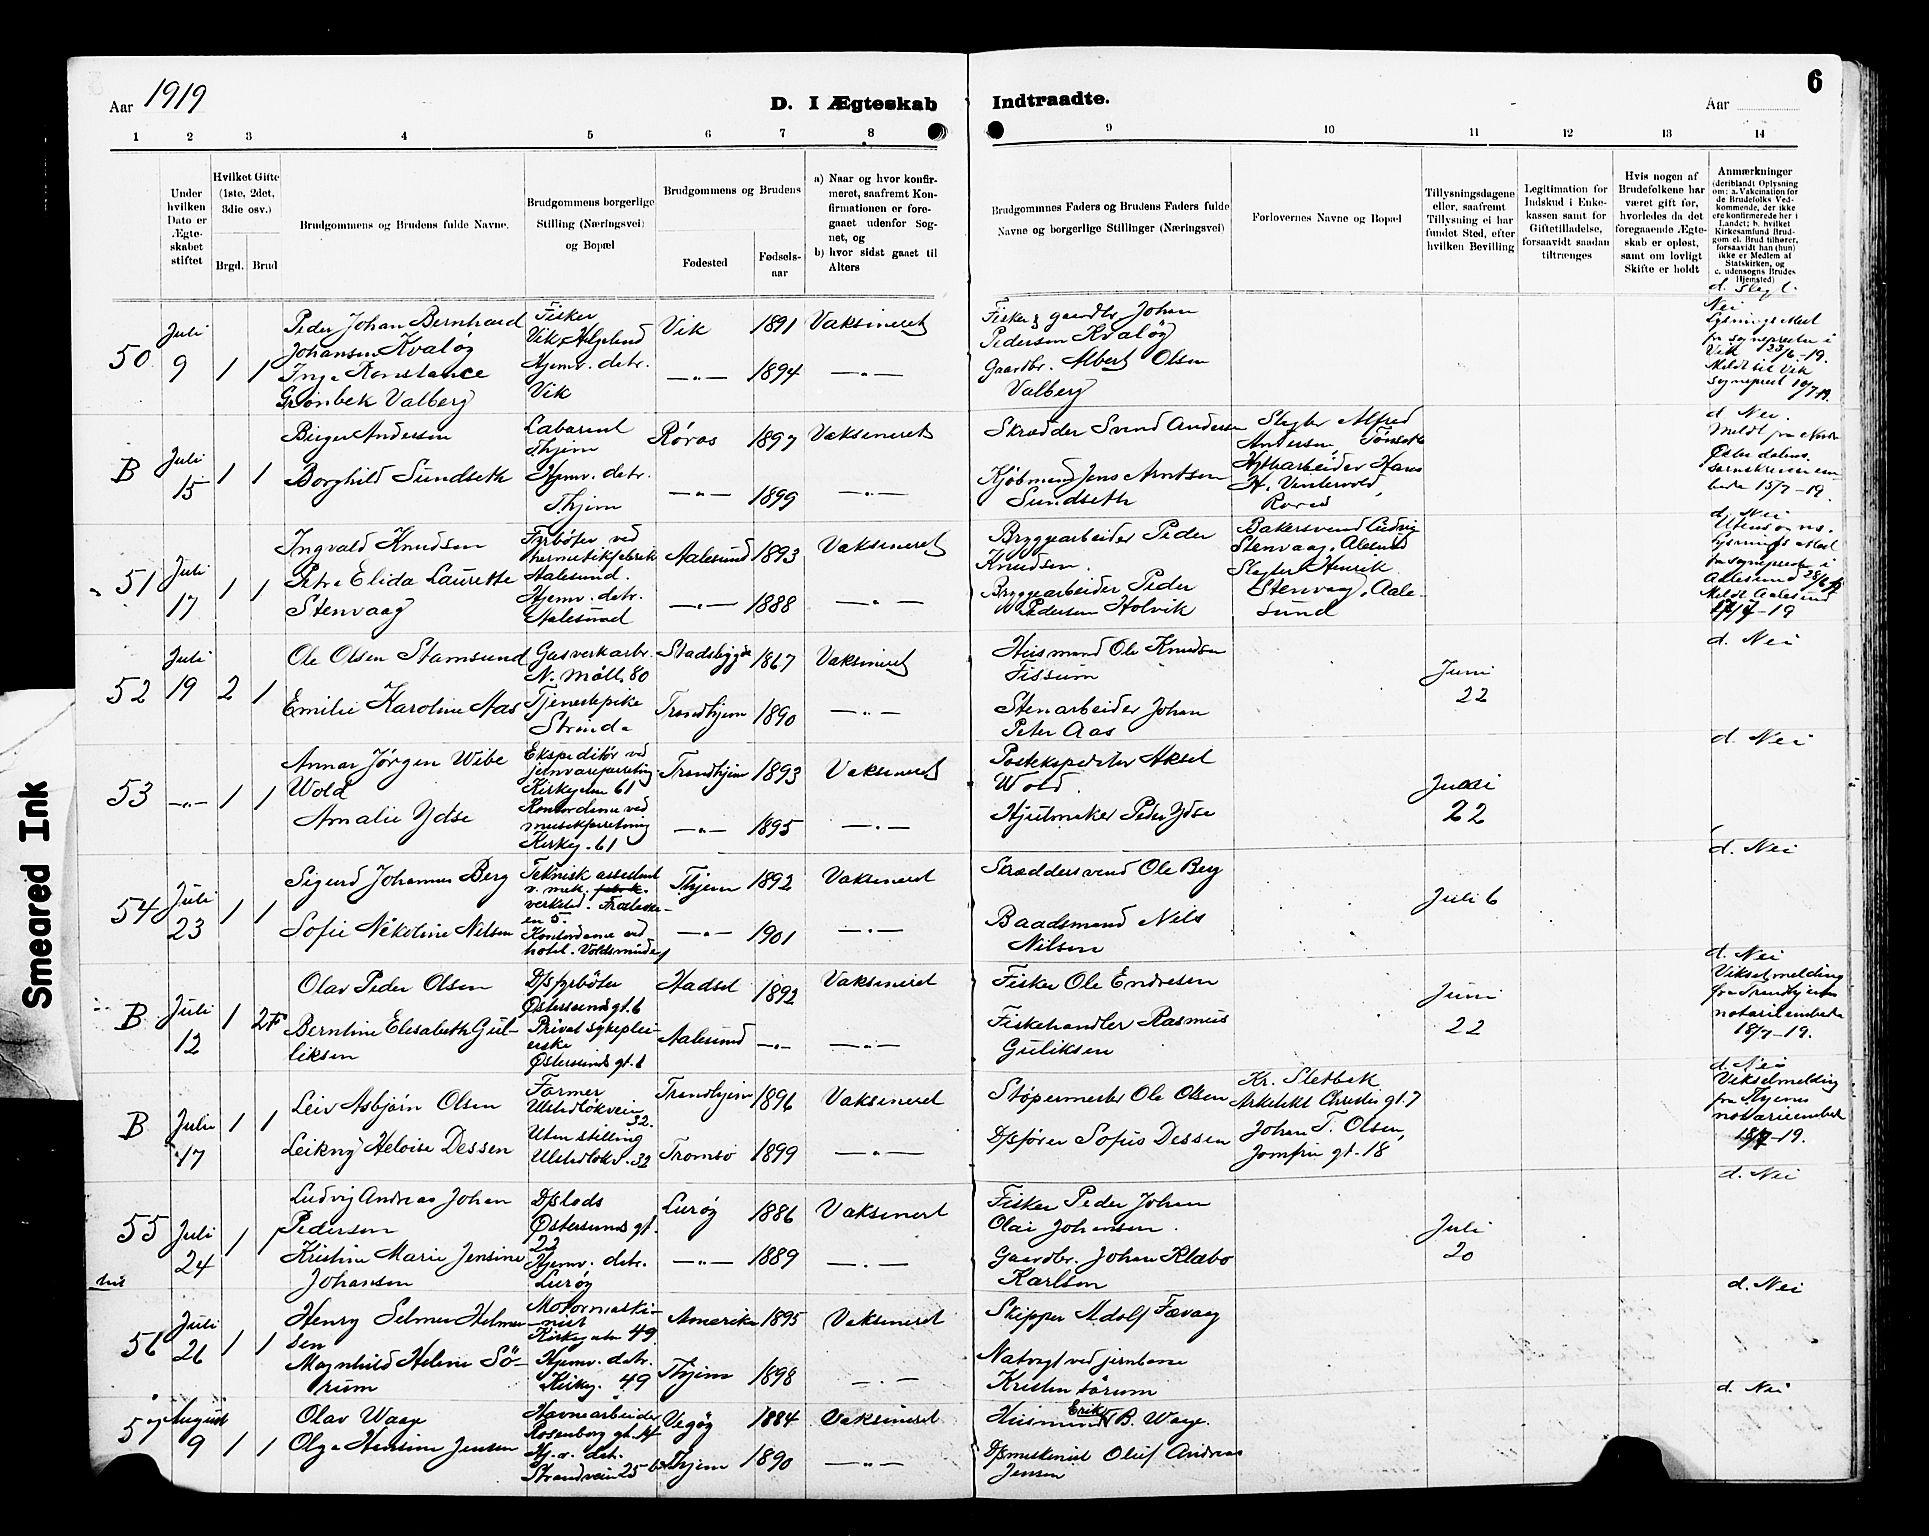 Aar 1919
D. I Ægteskab Indtraadte.
Aar
6
1 2 3 4 5 6 7 8 9 10 11 12 13 14
Under hvilken Dato er Ægteskabet stiftet
Hvilket Gifte (1ste, 2det, 3die osv.)
Brgd. Brud
Brudgommens og Brudens fulde Navne.
Brudgommens borgerlige Stilling (Næringsvei) og Bopæl
Brudgommens og Brudens
Fødested
Fødsels-aar
a) Naar og hvor konfirmeret, saafremt Konfirmationen er foregaaet udenfor Sognet, og
b) hvor sidst gaaet til Alters
Brudgommnes Faders og Brudens Faders fulde Navne og borgerlige Stillinger (Næringsvei)
Forlovernes Navne og Bopæl
Tillysningsdagene eller, saafremt Tillysning ei har fundet Sted, efter hvilken Bevilling
Legitimation for Indskud i Enkekassen samt for Giftetilladelse, forsaavidt saadan tiltrænges
Hvis nogen af Brudefolkene har været gift før, hvorledes da det foregaaende Ægteskab er opløst, samt om lovligt Skifte er holdt
Anmærkninger
(deriblandt Oplysning om: a. Vakcination for de Brudefolks Vedkommende, der ikke ere konfirmerede her i Landet; b. hvilket Kirkesamfund Brudgom el. Brud tilhører, forsaavidt han (hun) ikke er Medlem af Statskirken, og c. udensogns Brudes Hjemsted)
50 Juli 9 1 1
Peder Johan Bernhard
Johansen Kvaløy
Inga Konstance
Grønbek Valberg
Fisker
Vik, Helgeland
Hjemv. datr.
Vik
Vik 1891 Vaksineret
—„— 1894 —„—
Fisker & gaardbr. Johan
Pedersen Kvaløy
Gaardbr. Albert Olsen
Valberg
d. Slegt.
Nei
Lysnings Attest
fra sognepresten i
Vik 23/6-19.
Meldt til Vik
sogneprest 10/7 19.
B Juli 15 1 1
Birger Andersen
Borghild Sundseth
Laborant
Thjem
Hjemv. datr.
Thjem
Røros 1897 Vaksineret
—„— 1899 —„—
Skrædder Svend Andersen
Kjøbmand Jens Arntsen
Sundseth
Slagter Alfred
Andersen, Tønset
Hytarbeider Hans
H. Vintervold,
Røros
d. Nei.
Meldt fra Nordre
Østerdalens
sorenskriverem-
bede 15/7-19.
51 Juli 17 1 1
Ingvald Knudsen
Petra Elida Laurette
Stenvaag
Fyrbøter ved
hermetikfabrik
Aalesund.
Hjemv. datr.
Aalesund
Aalesund 1893 Vaksineret
—„— 1888 —„—
Bryggearbeider Peder
Knudsen.
Bryggearbeider Peder
Pedersen Holvik
Bakersvend Ludvig
Stenvaag, Alesund
Slagter Henrik
Stenvaag, Aale-
sund
d. Nei
Utensogns.
Lysnings Attest
fra sogneprest i
Aalesund 28/6 19
Meldt Aalesund
17/7-19
52 Juli 19 2 1
Ole Olsen Stamsund
Emilie Karoline Aas
Gasverkarbr.
N. Møll. 80
Tjenestepike
Strinda
Stadsbygden 1867 Vaksineret
Trondhjem 1890 —„—
Husmand Ole Knudsen
Fissum
Stenarbeider Johan
Peter Aas
Juni
22
d. Nei
53 —„— 1 1
Annar Jørgen Wibe
Wold
Amalie Ydse
Ekspeditør ved
jernvareforretning
Kirkegaten 61
Kontordame ved
musikforretning
Kirkeg. 61
Trondhjem 1893 Vaksineret
—„— 1895 —„—
Postekspeditør Aksel
Wold.
Hjulmaker Peder Ydse
Juni
22
d. Nei
54 Juli 23 1 1
Sigurd Johannes Berg
Sofie Nikoline Nilsen
Teknisk assistent
v. mek. fabrik.
verksted.
en 5.
Kontordame ved
hotel. Voldsminde
Thjem 1892 Vaksineret
—„— 1901 —„—
Skræddersvend Ole Berg
Baadsmand Nils
Nilsen
Juli 6
d. Nei
B Juli 12 1 2F
Olav Peder Olsen
Berntine Elisabeth Gul-
liksen
D/sfyrbøter
Østersundsgt. 6
Privat sykeplei-
erske
Østersunds gt. 6
Hadsel 1892 Vaksineret
Aalesund —„— —„—
Fisker Ole Endresen
Fiskehandler Rasmus
Guliksen
Juni
22
d. Nei
Vikselmelding
fra Trondhjems
notarialembede
18/7-19.
B Juli 17 1 1
Leiv Asbjørn Olsen
Leikny Heloise Dessen
Former
Ulstedløkvein
32.
Uten stilling
Ulstedløkv. 32
Trondhjem 1896 Vaksineret
Tromsø 1899 —„—
Støpermester Ole Olsen
D/sfører Sofus Dessen
Kr. Sletbak
Arkitekt Christies gt. 7
Johan T. Olsen,
Jomfru gt. 18
d. Nei
Vikselmelding
fra Thjems
notarieembede
18/7-19.
55 Juli 24 1 1
Ludvig Andreas Johan
Pedersen
Kristine Marie Jensine
Johansen
D/slods
Østersunds gt.
22
Hjemv. datr.
Lurøy
Lurøy 1886 Vaksinert
—„— 1889 —„—
Fisker Peder Johan
Olai Johansen.
Gaardbr. Johan Klabo
Karlsen
Juli
20
d. Nei
56 Juli 26 1 1
Henry Selmer Helmer-
sen
Magnhild Helene Sö-
rum
Motormaski-
nist
Kirkegaten 49.
Hjemv. datr.
Kirkeg. 49
Amerika 1895 Vaksineret
Thjem 1898 —„—
Skipper Adolf Fævaag
Natvagt ved jernbane
Kristen Sörum
d. Nei
57 August 9 1 1
Olav Waage
Olga Hensine Jensen
Havnearbeider
Rosenborg gt. 14
Hj. v. datr.
Strandvein 25 b
Vegøy 1884 Vaksineret
Thjem 1890 —„—
Husmand Erik B. Waage.
D/smaskinist Oluf Andreas
Jensen
d. Nei
Smeared Ink